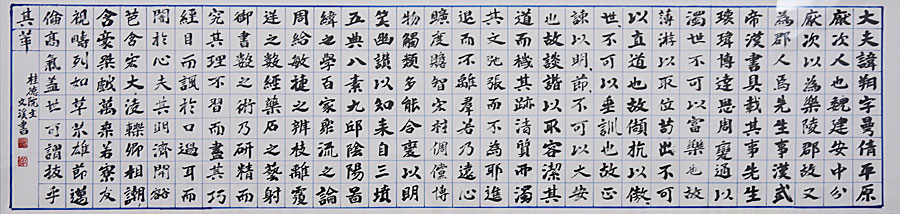 大夫諱朔字曼倩平原
厭次人也魏建安中分
厭次以為樂陵郡故又
為郡人焉先生事漢武
帝漢書具載其事先生
瓌瑋博達思周變通以
濁世不可以富樂也故
薄游以取位苟出不可
以直道也故傾抗以傲
世〻不可以垂訓也故正
諫以明節〻不可以久安
也故談諧以取容潔其
道而穢其跡清質而濁
其文弛張而不為耶進
退而不離羣若乃遠心
曠度贍智宏材倜儻博
物觸類多能合變以明
笑幽讚以知来自三墳
五典八索九邱陰陽圖
緯之學百家眾流之論
周給敏捷之辨枝離覆
逆之數經藥石之藝射
御書數之術乃研精而
究其理不習而盡其巧
經目而諷於口過耳而
闇於心夫其明濟開豁
苞含宏大凌轢卿相謿
桀戲萬乘若寮友
視疇列如草芥雄節邁
倫高氣蓋世可謂拔乎
其萃